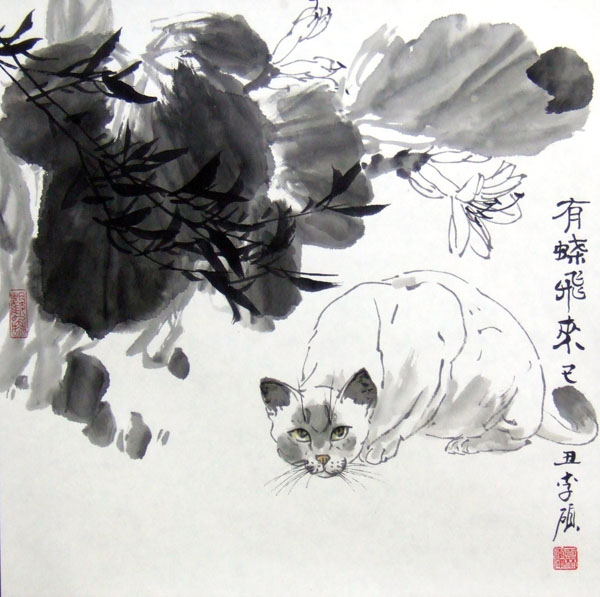 有蝶飛來己丑李碩